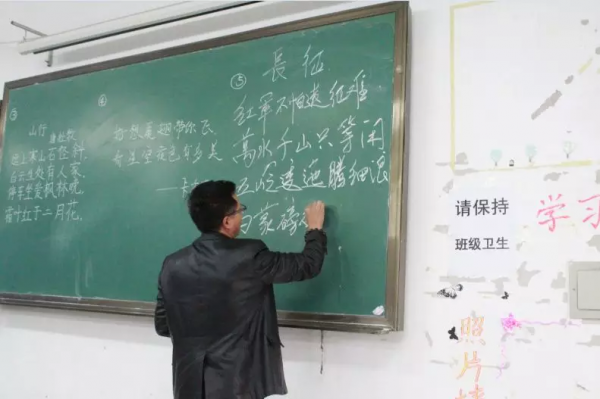 ③
山行
杜牧
远上寒山石径斜,
白云生处有人家,
停车坐爱枫林晚,
霜叶红于二月花。
④
⑤
長征
红軍不怕远征难
萬水千山只等闲
五岭逶迤腾细浪
乌蒙磅
请保持
班级卫生
学习
照片墙